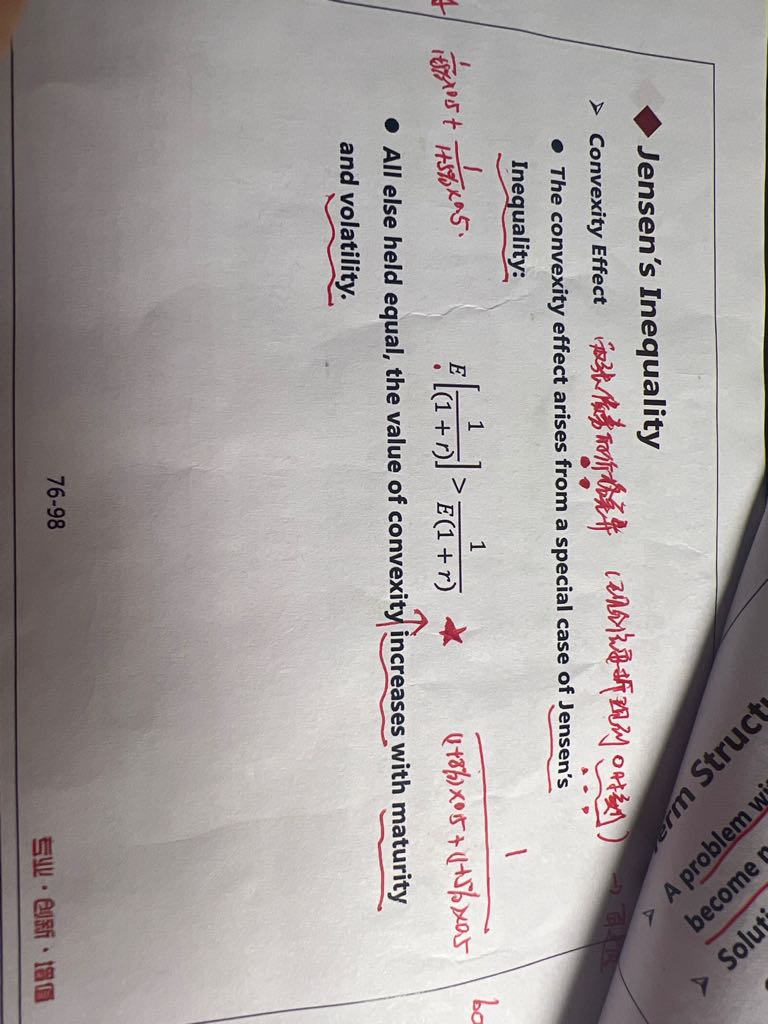 Jensen's Inequality
➢ Convexity Effect
● The convexity effect arises from a special case of Jensen's
Inequality:
E[1/(1 + r)] > 1/E(1 + r)
1/(1+8%)×0.5 + 1/(1+5%)×0.5
1/((1+8%)×0.5 + (1+5%)×0.5)
● All else held equal, the value of convexity increases with maturity
and volatility.
76-98
专业 · 创新 · 增值
erm Struct
A problem wi
become n
Soluti